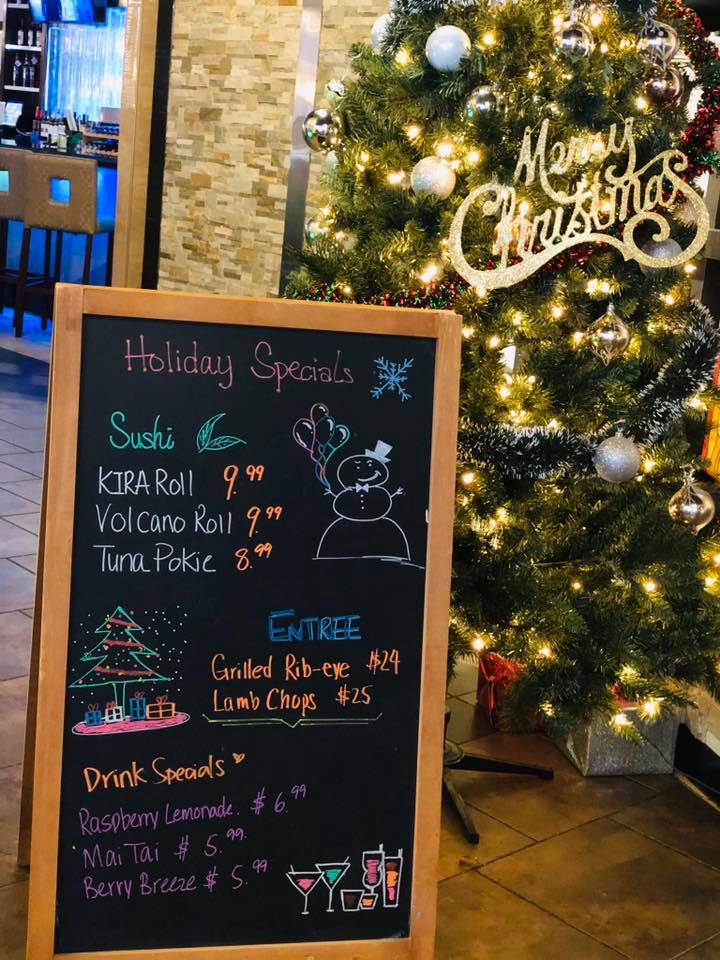 Merry
Christmas
Holiday Specials
Sushi
KIRA Roll 9.99
Volcano Roll 9.99
Tuna Pokie 8.99
ENTREE
Grilled Rib-eye $24
Lamb Chops $25
Drink Specials
Raspberry Lemonade. $6.99
Mai Tai $5.99.
Berry Breeze $5.99